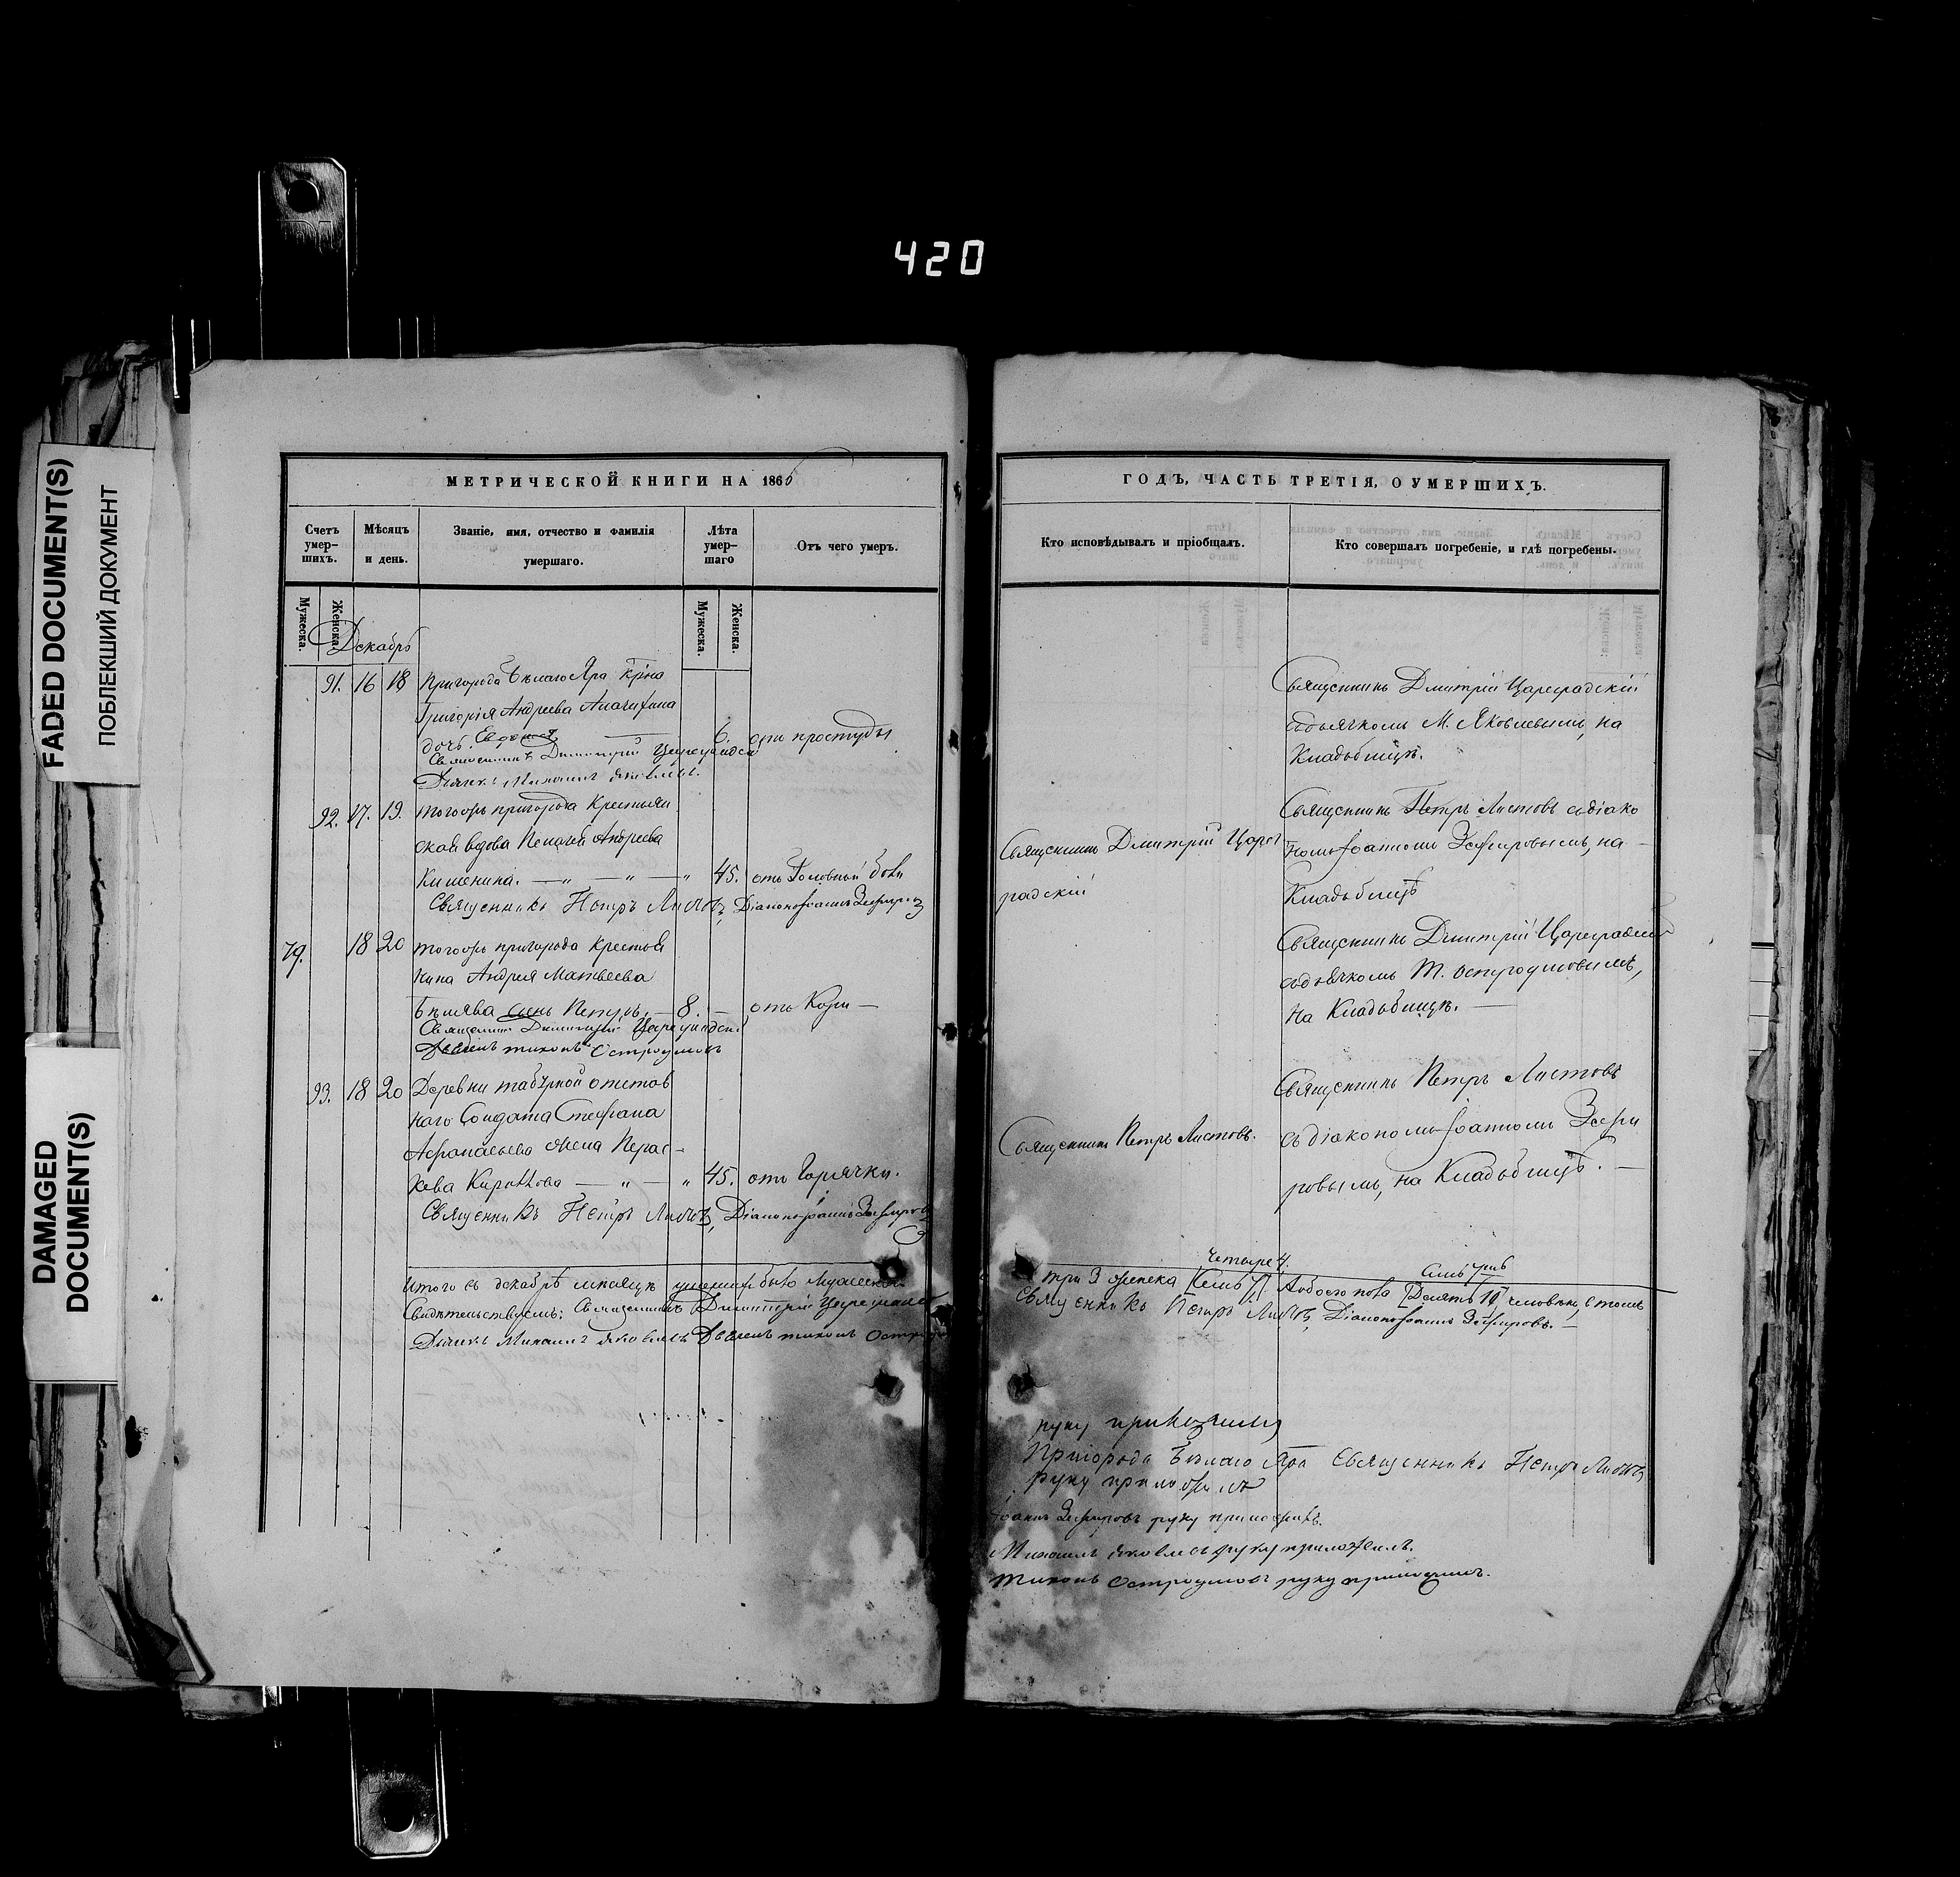 420
FADED DOCUMENT(S)
ПОБЛЕКШИЙ ДОКУМЕНТ
DAMAGED
DOCUMENT(S)
МЕТРИЧЕСКОЙ КНИГИ НА 186
Счетъ умер-шихъ.
Мѣсяцъ и день.
Званіе, имя, отчество и фамилія умершаго.
Лѣта умер-шаго
Отъ чего умеръ.
Мужеска.
Женска.
Мужеска.
Женска.
Декабрь
91. 16 18 Пригорода Бѣлаго Яра
Григорія Андреева
дочь 6. отъ простуды
Священникъ Димитрій Цареградскій
Дьячекъ Михаилъ Яковлевъ.
92. 17. 19. тогожъ пригорода Крестьян
ская вдова Пелагея Андреева
Кишенина. — „ — „ — „ 45. отъ Головной боли
Священникъ Петръ Листовъ, Діаконъ Іоаннъ Зефировъ
79. 18 20 тогожъ пригорода крестья
нина Андрея Матвеева
Бѣляева сынъ Петръ. — 8. — отъ Кори —
Священникъ Димитрій Цареградскій
тихонъ Остроумовъ
93. 18 20 Деревни отстав
наго Солдата Стефана
Афанасьева жена Парас-
кева — „ — „ 45. отъ Горячки.
Священникъ Петръ Листовъ, Діаконъ Іоаннъ Зефировъ
Итого въ декабрѣ мѣсяцѣ умершихъ было Мужеска
Свидѣтельствуемъ: Священникъ Димитрій Цареградскій
Дьячекъ Михаилъ Яковлевъ тихонъ
ГОДЪ, ЧАСТЬ ТРЕТІЯ, О УМЕРШИХЪ.
Кто исповѣдывалъ и пріобщалъ.
Кто совершалъ погребеніе, и гдѣ погребены.
Священникъ Дмитрій Цареградскій
съ дьячкомъ М. Яковлевымъ, на
Кладбищѣ.
Священникъ Петръ Листовъ съ діако
номъ Іоанномъ Зефировымъ, на
Кладбищѣ
Священникъ Дмитрій Царег
радскій
Священникъ Дмитрій Цареградскій
съ дьячкомъ Т. Остроумовымъ,
на Кладбищѣ. —
Священникъ Петръ Листовъ
Священникъ Петръ Листовъ.
съ діакономъ Іоанномъ Зефи
ровымъ, на Кладбищѣ. —
четыре 4,
три 3 женска [Семь 7] А обоего пола [Десять 10] человѣкъ, въ томъ
Священникъ Петръ Листовъ, Діаконъ Іоаннъ Зефировъ. —
руку
Пригорода Бѣлаго Яра Священникъ Петръ Листовъ
руку приложилъ
Іоаннъ Зефировъ руку приложилъ.
Михаилъ Яковлевъ руку приложилъ.
тихонъ Остроумовъ руку приложилъ.